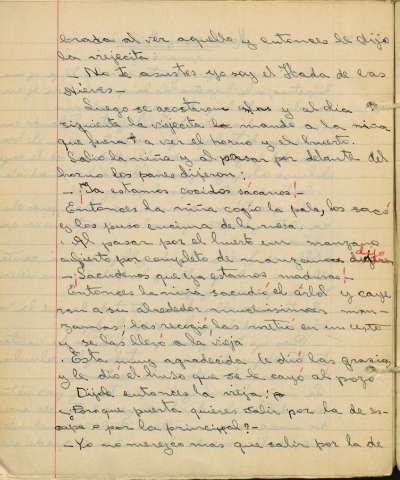 erada al ver aquello y entonces le dijo
la viejecita:
— No te asustes yo soy el Hada de las
Nieves —
Luego se acostaron las y al dia
siguiente la viejecita la mando a la niña
que fuera a ver el horno y el huerto.
Salio la niña y al pasar por delante del
horno los panes dijeron:
— ¡Ya estamos cocidos sácanos! —
Entonces la niña cogio la pala, los sacó
y los puso encima de la mesa.
. Al pasar por el huerto un manzano
cubierto por completo de manzanas dijo
— ¡Sacudenos que ya estamos maduras! —
Entonces la niña sacudió el árbol y caye
ron a su alrededor muchisimas man-
zanas; las recogió las metió en un cesto
y se las llevó a la vieja
. Esta muy agradecida le dió las gracias
y le dió el huso que se le cayó al pozo
Dijole entonces la vieja:
— Por que puerta quieres salir por la de es-
cape o por la principal? —
— Yo no merezco mas que salir por la de